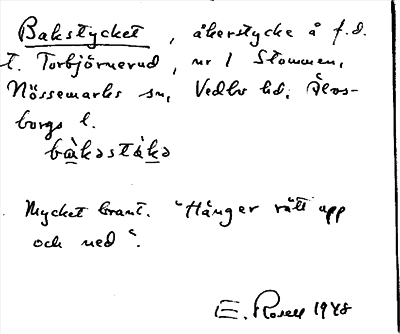 Bakstycket, åkerstycke å f.d.
t. Torbjörnerud, nr 1 Stommen,
Nössemarks sn, Vedbo hd, Älvs-
borgs l.
bàkəstàkə
Mycket brant. "Hänger rätt upp
och ned".
E. Rosell 1948